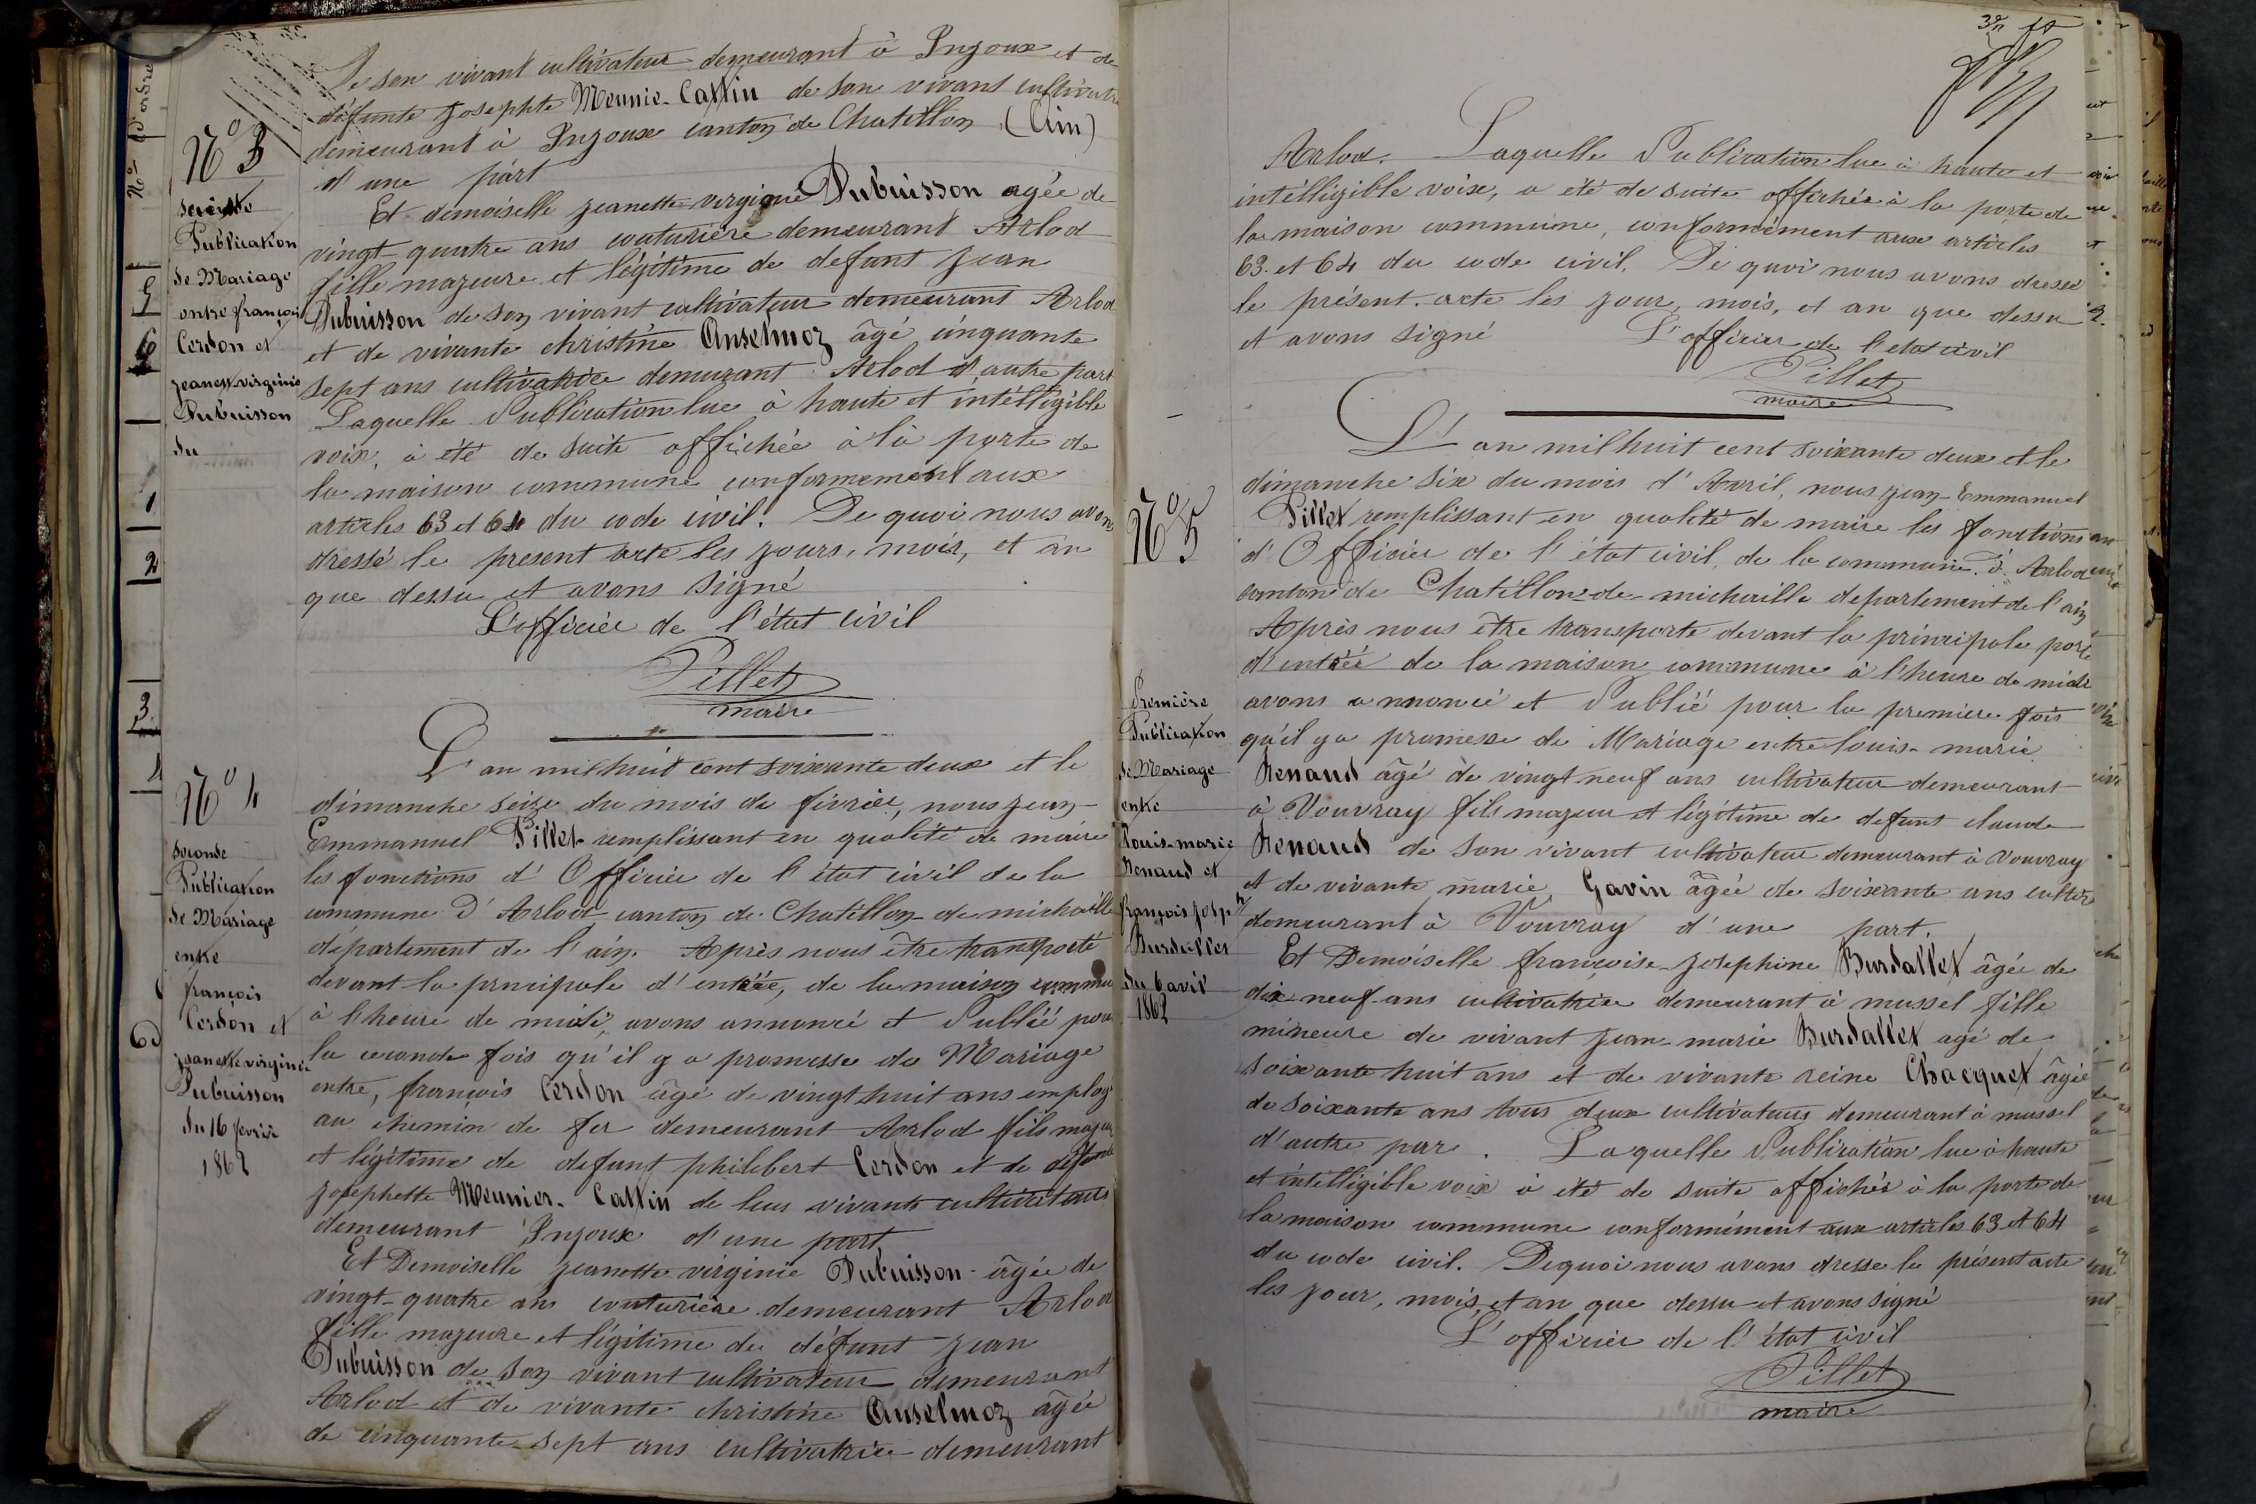 De son vivant cultivateur demeurant à Injoux et de
défunte Josephte Meunie-Cattin de son vivant cultivatr
demeurant à Injoux canton de Chatillon (Ain)
d'une part
Et demoiselle Jeanette-virginie Dubuisson agée de
vingt-quatre ans couturière demeurant Arlod
fille majeure et légitime de defunt Jean
Dubuisson de son vivant cultivateur demeurant Arlod
et de vivante christine Anselmoz âgé cinquante
sept ans cultivatrice demeurant Arlod d'autre part
Laquelle Publication lue à haute et intélligible
voix, à été de suite affichée à la porte de
la maison commune conformement aux
articles 63 et 64 du code civil. De quoi nous avons
dressé le present acte les jours, mois, et an
que dessu et avons signé
L'officier de l'état civil
Pillet
maire
N° 3
Publication
de Mariage
entre françois
Cerdon et
Jeanette virginie
Dubuisson
du
L'an mil huit cent soixante deux et le
dimanche seize du mois de fivrier, nous jean-
Emmanuel Pillet remplissant en qualité de maire
les fonctions d'Officier de l'état civil de la
commune d'Arlod canton de Chatillon-de-michaille
département de l'ain. Après nous être transporté
devant la principale d'entrée, de la maison commu
à l'heure de midi, avons annoncé et Publié pour
la seconde fois qu'il y a promesse de Mariage
entre, françois Cerdon âgé de vingt huit ans employ
au chemin de fer demeurant Arlod fils majeur
et légitime de defunt philibert Cerdon et de défunte
Josephette Meunier-Cattin de leur vivants cultivateurs
demeurant Injoux d'une part
Et Demoiselle Jeanette virginie Dubuisson âgée de
vingt-quatre ans couturière demeurant Arlod
fille majeure et légitime de défunt Jean
Dubuisson de son vivant cultivateur demeurant
Arlod et de vivante christine Anselmoz âgée
de cinquante-sept ans cultivatrice demeurant
N° 4
seconde
Publication
de Mariage
entre
françois
Cerdon et
Jeanette virginie
Dubuisson
du 16 fevrier
1862
Arlod. Laquelle Publication lue à haute et
intélligible voix, a été de suite affichée à la porte de
la maison commune, conformément aux articles
63 et 64 du code civil. De quoi nous avons dressé
le présent acte les jour, mois, et an que dessu
et avons signé L'officier de l'etat civil
Pillet
maire
L'an mil huit cent soixante deux et le
dimanche six du mois d'Avril, nous jean-Emmanuel
Pillet remplissant en qualité de maire les fonctions
d'Officier de l'état civil, de la commune d'Arlod
canton de Chatillon-de-michaille departement de l'ain
Après nous être transporté devant la principale porte
d'entrée de la maison commune à l'heure de midi
avons annoncé et Publié pour la premiere fois
qu'il y a promesse de Mariage entre louis-marie
Renaud âgé de vingt neuf ans cultivateur demeurant
à Vouvray fils majeur et légitime de defunt claude
Renaud de son vivant cultivateur demeurant à Vouvray
et de vivante marie Gavin âgée de soixante ans cultiv
demeurant à Vouvray d'une part.
Et Demoiselle françoise-Josephine Burdallet âgée de
dix neuf ans cultivatrice demeurant à mussel fille
mineure de vivant jean-marie Burdallet agé de
soixante huit ans et de vivante reine Chacquet âgée
de soixante ans tous deux cultivateurs demeurant à mussel
d'autre par. Laquelle Publication lue à haute
et intélligible voix à été de suite affichée à la porte de
la maison commune conformément aux articles 63 et 64
du code civil. De quoi nous avons dresse le présent acte
les jour, mois, et an que dessu et avons signé
L'officier de l'état civil
Pillet
maire
N° 5
Première
Publication
de Mariage
entre
Louis-marie
Renaud et
françois josph
Burdallet
du 6 avril
1862